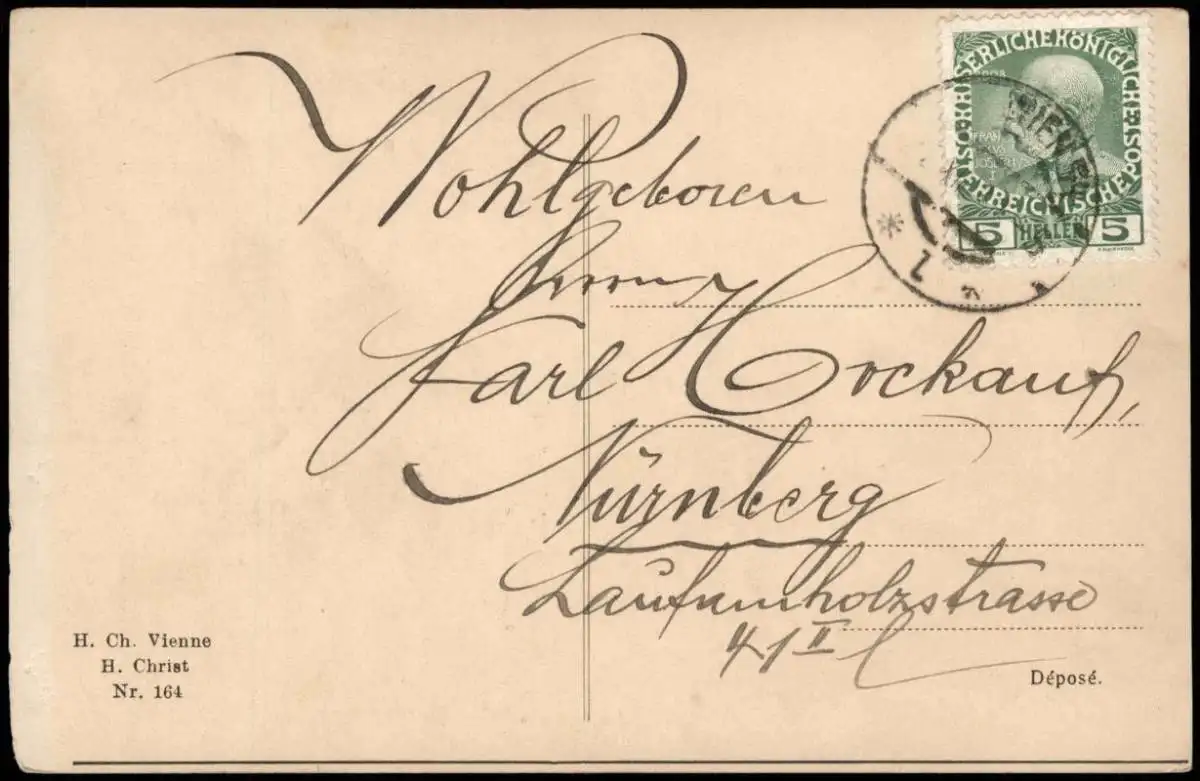 KAISERLICHE KÖNIGLICHE
ÖSTERREICHISCHE POST
FRANC
IOSEPHVS I
5 HELLER 5
WIEN
Wohlgeboren
Herrn
Karl Hockauf,
Nürnberg
Laufamholzstrasse
41 II l
H. Ch. Vienne
H. Christ
Nr. 164
Déposé.